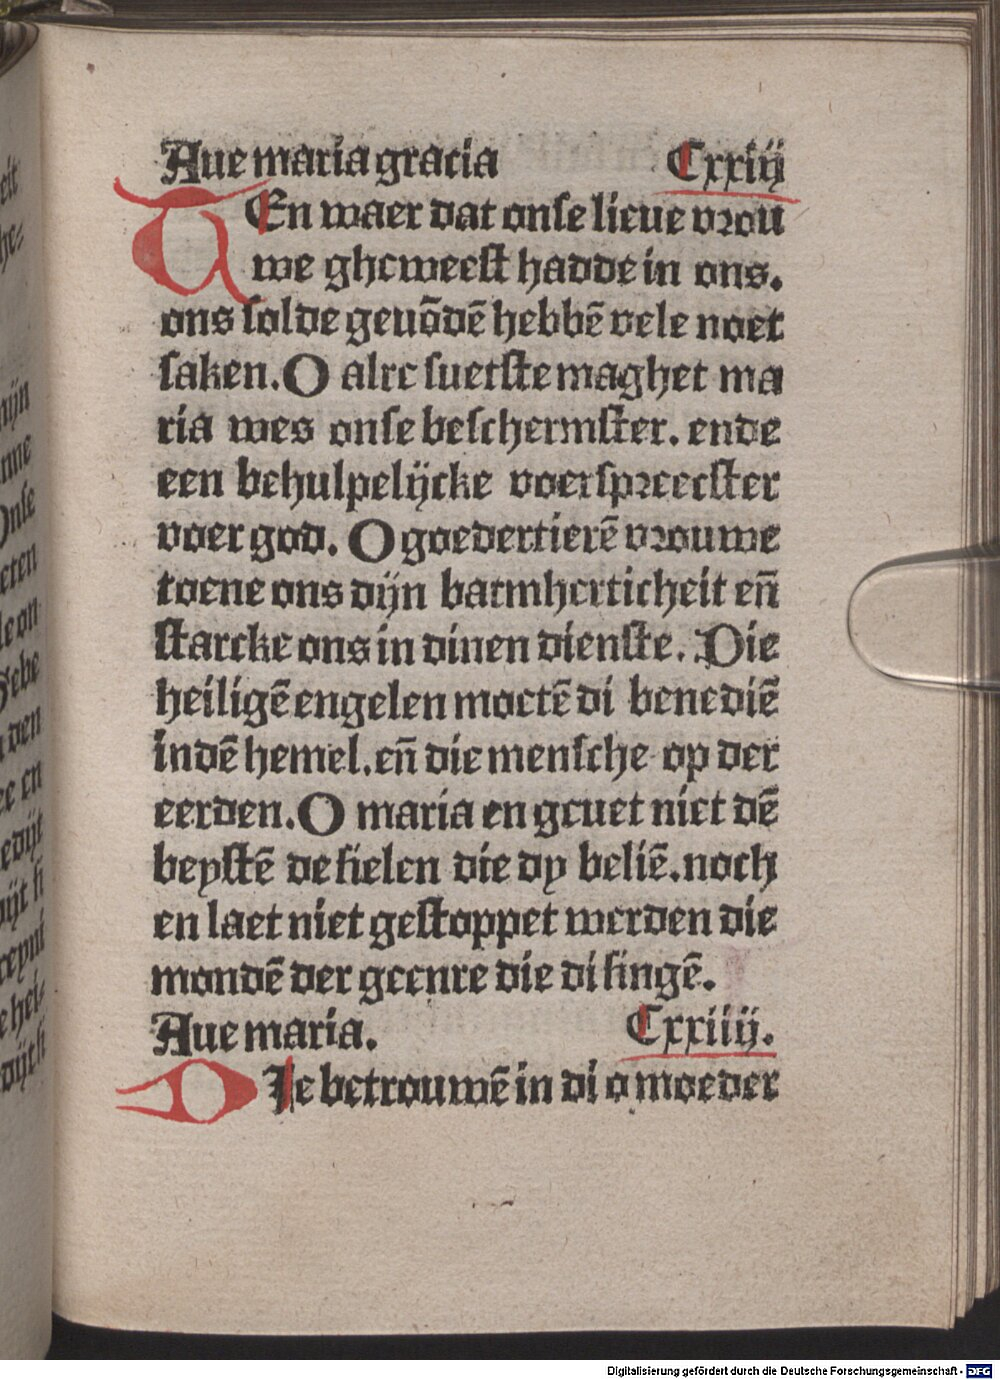 Aue maria gracia Cxxiij
TEn waer dat onse lieue vrou
we gheweest hadde in ons.
ons solde geuōdē hebbē vele noet
saken. O alre suetste maghet ma
ria wes onse beschermster. ende
een behulpelijcke voerspreecster
voer god. O goedertierē vrouwe
toene ons dijn barmherticheit en̄
starcke ons in dinen dienste. Die
heiligē engelen moetē di benediē
in dē hemel. en̄ die mensche op der
eerden. O maria en geuet niet dē
beystē de sielen die dy beliē. noch
en laet niet gestoppet werden die
mondē der geenre die di singē.
Aue maria. Cxxiiij.
DIe betrouwē in di o moeder
Digitalisierung gefördert durch die Deutsche Forschungsgemeinschaft - DFG